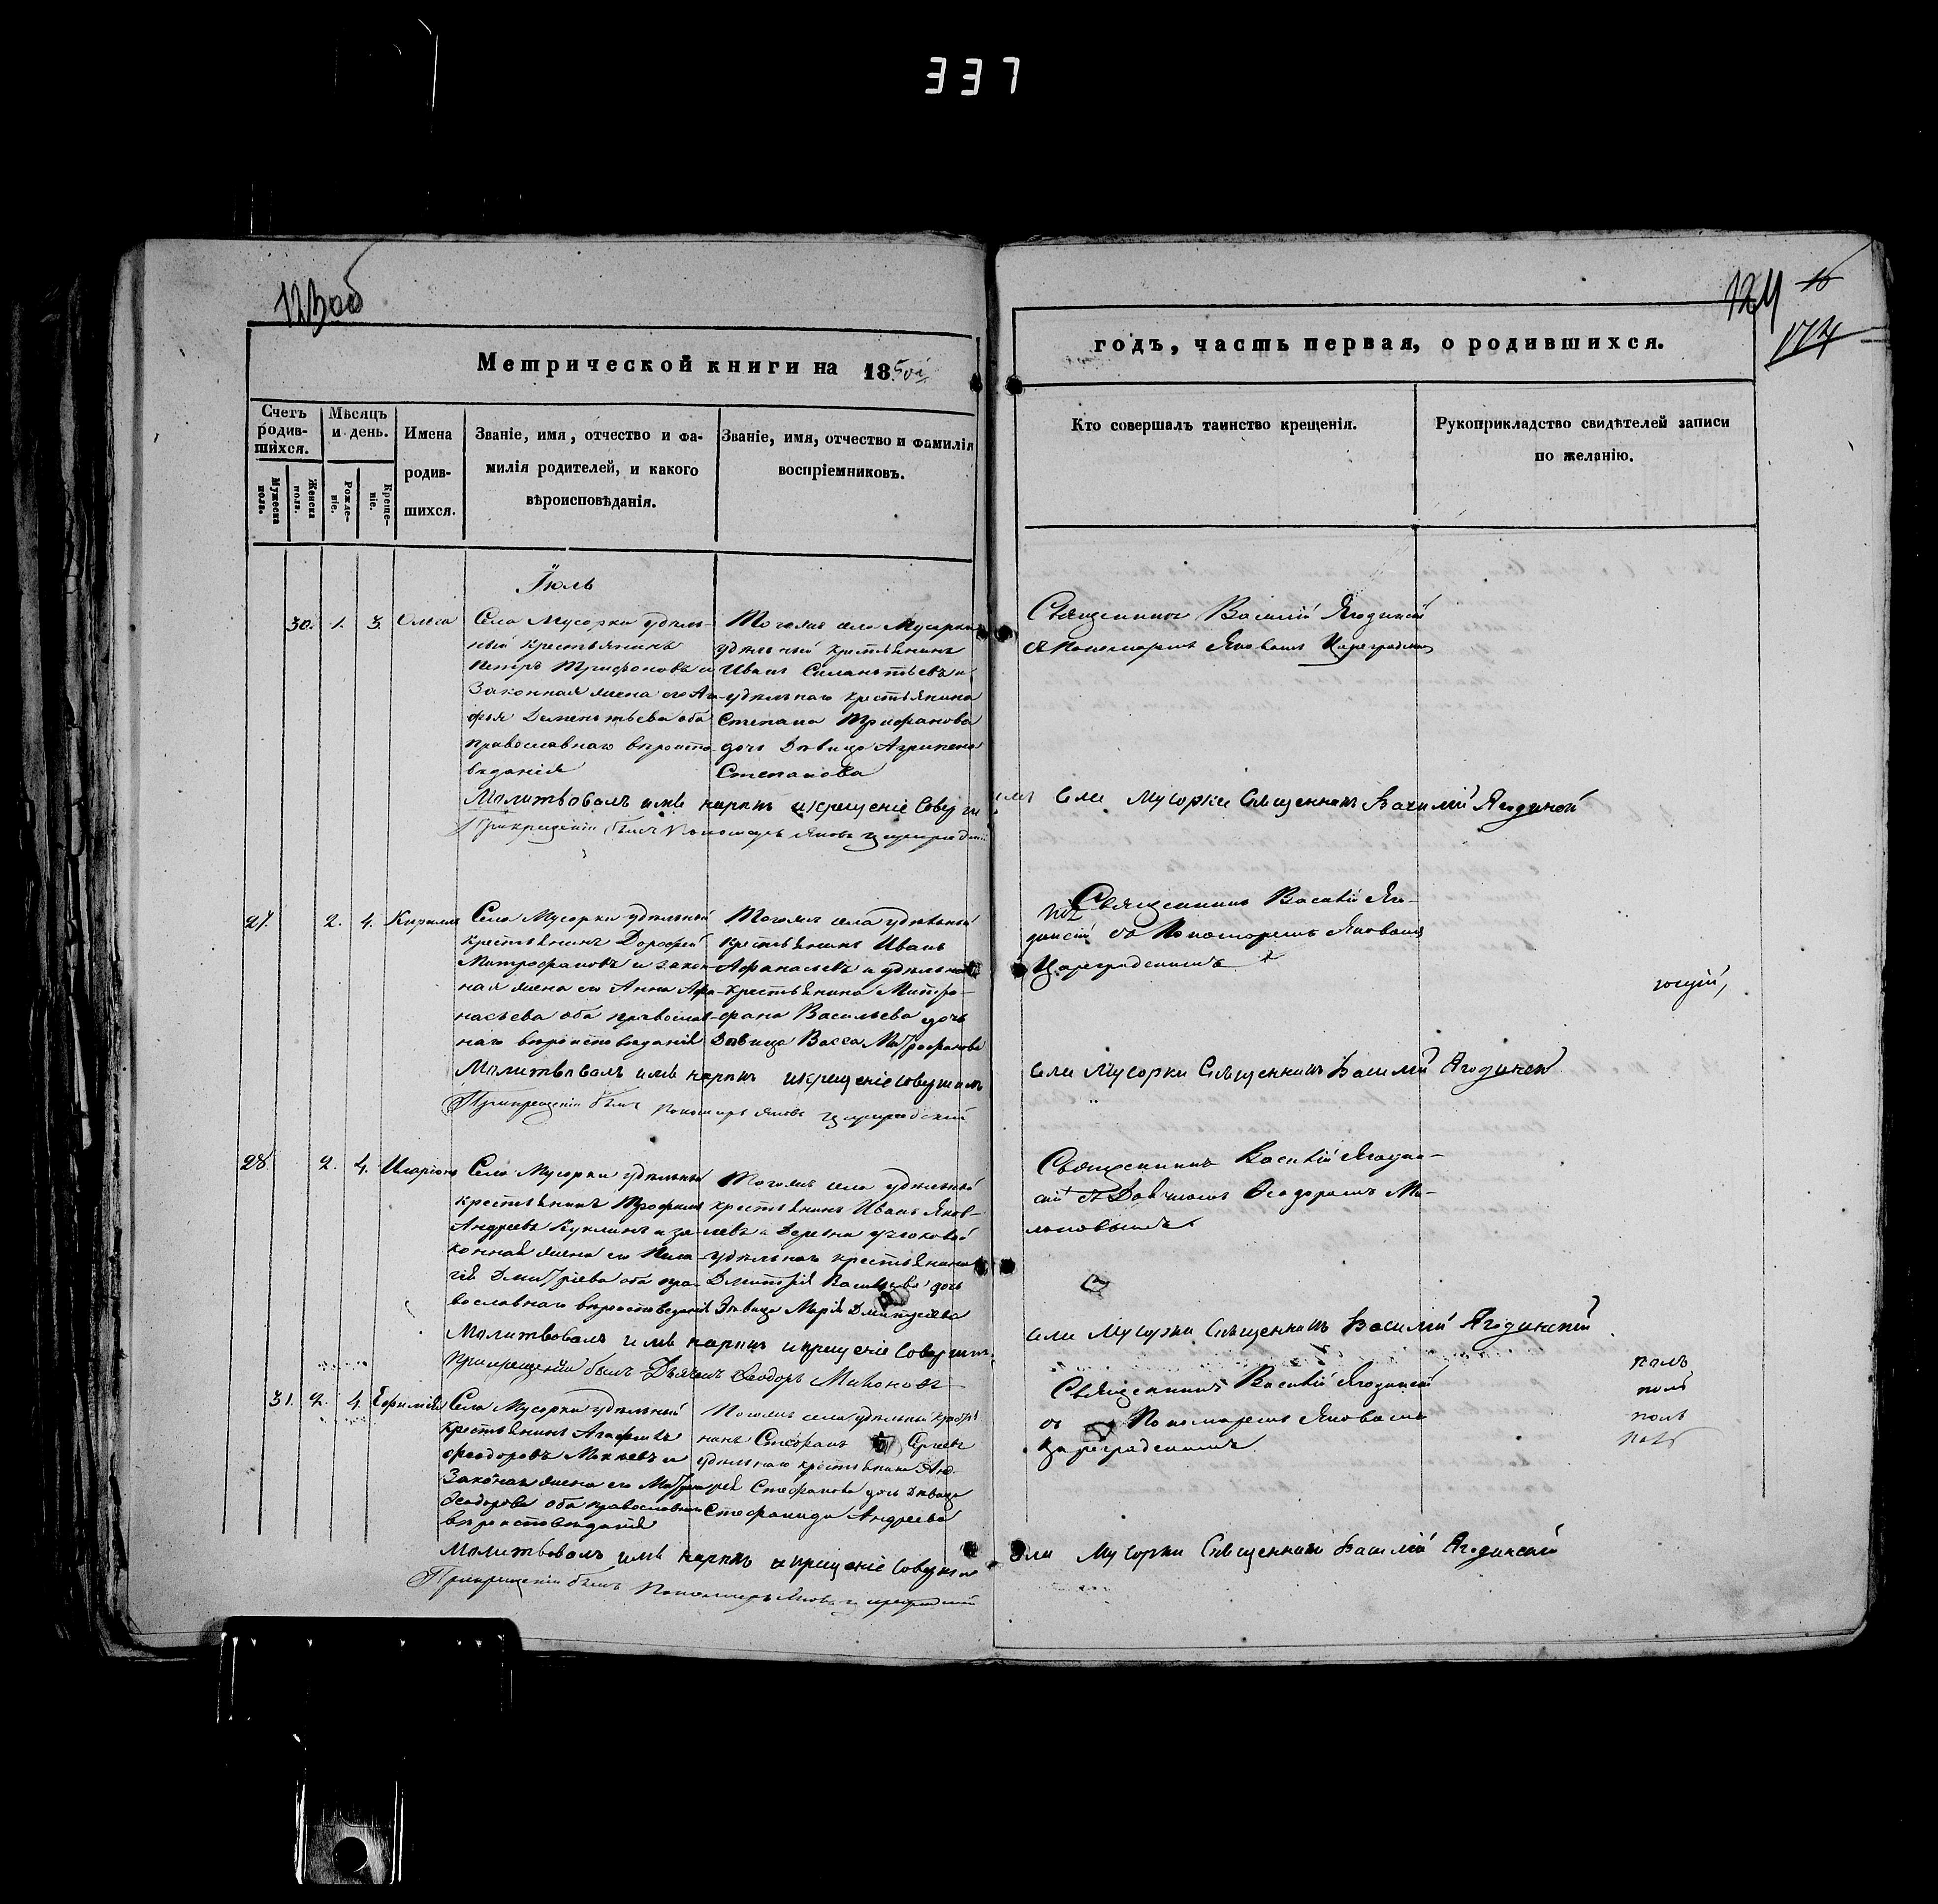 337
123об
124
Метрической книги на 1850й
годъ, часть первая, о родившихся.
Счетъ родив-шихся.
Мѣсяцъ и день.
Мужеска полъ.
Женска полъ.
Рожде-ніе.
Креще-ніе.
Имена родив-шихся.
Званіе, имя, отчество и фа-
милія родителей, и какого
вѣроисповѣданія.
Званіе, имя, отчество и фамилія
воспріемниковъ.
Кто совершалъ таинство крещенія.
Рукоприкладство свидѣтелей записи
по желанію.
Іюль
30. 1. 3. Ольга
Села Мусорки удѣль-
ный крестьянинъ
Петръ Трифоновъ и
Законная жена его Ага-
фья Дементьева оба
православнаго вѣроиспо-
вѣданія
Тогожъ села Мусорки
удѣльный крестьянинъ
Иванъ Силантьевъ и
удѣльнаго крестьянина
Степана Трифанова
дочь Дѣвица Агрипена
Степанова
Священникъ Василій Ягодинскій
съ Пономаремъ Яковомъ Цареградскимъ
Молитвовалъ имя нарекъ и крещеніе Соверши
лъ Села Мусорки Священникъ Василій Ягодинской
При крещеніи былъ Пономарь Яковъ Цареградский
27. 2. 4. Кириллъ
Села Мусорки удѣльный
крестьянинъ Дорофей
Митрофановъ и закон-
ная жена его Анна Афа-
насьева оба православ-
наго вѣроисповѣданія
Тогожъ села удѣльный
крестьянинъ Иванъ
Афанасьевъ и удѣльнаго
крестьянина Митро-
фана Васильева дочь
Дѣвица Васса Митрофанова
Священникъ Василій Яго-
динскій съ Пономаремъ Яковомъ
Цареградскимъ
Молитвовалъ имя нарекъ и крещеніе совершилъ
Села Мусорки Священникъ Василій Ягодинской
При крещеніи былъ Пономарь Яковъ Цареградский
28. 2. 4. Иларіонъ
Села Мусорки удѣльный
крестьянинъ Трофимъ
Андреевъ Куклинъ и за-
конная жена его Пела-
гія Дмитріева оба пра-
вославнаго вѣроисповѣданія
Тогожъ села удѣльный
крестьянинъ Иванъ Яков-
левъ и Деревни
удѣльнаго крестьянина
Дмитрія Васильева дочь
Дѣвица Марія Дмитріева
Священникъ Василій Ягодин-
скій съ Дьячкомъ Ѳеодоромъ Ми-
лоновымъ
Молитвовалъ имя нарекъ и крещеніе Совершилъ
Села Мусорки Священникъ Василій Ягодинской
При крещеніи былъ Дьячекъ Ѳеодоръ Милоновъ
31. 2. 4. Евфимія
Села Мусорки удѣльный
крестьянинъ Агафонъ
Ѳеодоровъ Мокѣевъ и
Законная жена его Матрона
Ѳеодорова оба православнаго
вѣроисповѣданія
Тогожъ села удѣльный крестья
нинъ Стефанъ Сергѣевъ
удѣльнаго крестьянина Анд
рея Стефанова дочь Дѣвица
Стефанида Андреева
Священникъ Василій Ягодинскій
съ Пономаремъ Яковомъ
Цареградскимъ.
полъ
полъ
полъ
Молитвовалъ имя нарекъ и крещеніе Совершилъ
Села Мусорки Священникъ Василій Ягодинской
При крещеніи былъ Пономарь Яковъ Цареградский